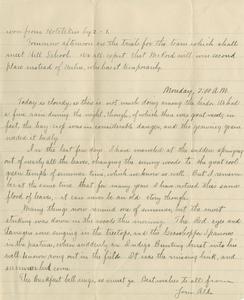 won from Hotchkiss by 2 - 1.
Tomorrow afternoon is the trials for the team which shall
meet Hill School. We all expect that McKord will win second
place instead of Usher, who has it temporarily.
Monday, 7:00 A.M.
Today is cloudy, so there is not much doing among the birds. We had
a fine rain during the night, though, of which there was great need; in
fact, the hay crop was in considerable danger, and the greenery grow-
In the last few days I have marveled at the sudden springing
out of nearly all the leaves, changing the sunny woods to the great cool
green temples of summer time, which we know so well. But I remem-
ber at the same time that for many you have noticed this same
flood of leaves, it can never be an old story though.
Many things now remind one of summer, but the most
striking was down in the woods this morning. The Red-eyes and
Tanagers were singing in the treetops, and the Grasshopper Sparrows
in the pasture, when suddenly an Indigo Bunting burst into his
well-known song out in the fields. It was the missing link, and
summer had come.
The breakfast bell rings, so I must go. Best wishes to all from